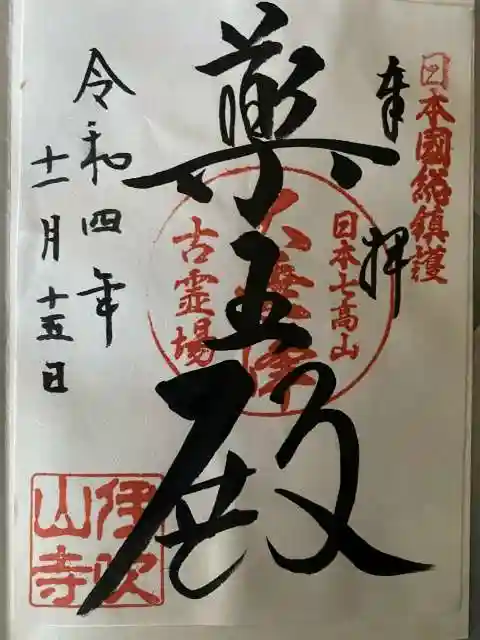 日本國総鎮護
奉拝
日本七高山
薬王殿
古霊場
令和四年
十一月十五日
伊吹山寺